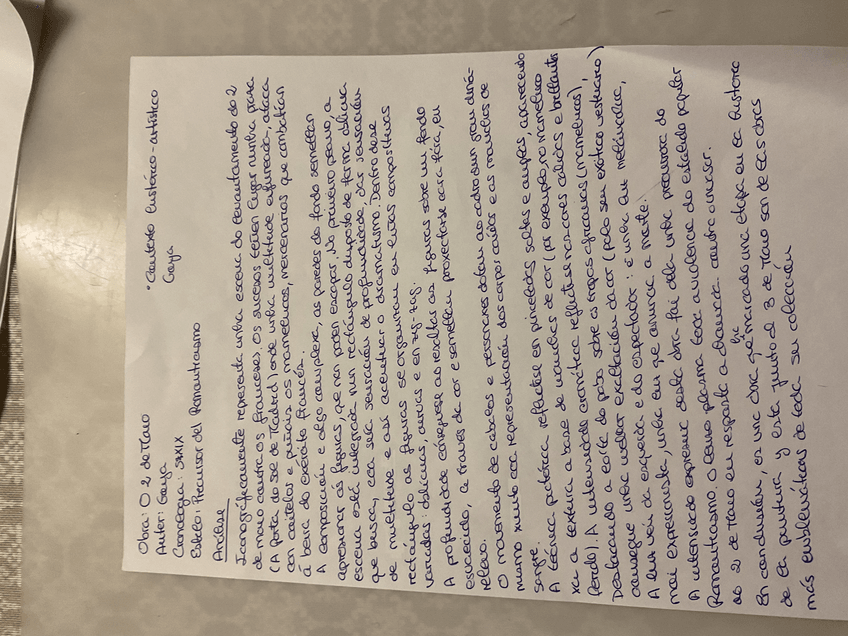 Obra: O 2 de Maio
Autor: Goya
Cronoloxía: S XIX
Estilo: Precursor del Romanticismo
Análise
• Contexto histórico-artístico
Goya
Iconográficamente representa unha escena do levantamento do 2
de maio contra os franceses. Os sucesos teñen lugar nunha praza
(A Porta do Sol de Madrid) onde unha multitude enfurecida, ataca
con coitelos e puñais os mamelucos, mercenarios que combatían
á beira do exército francés.
A composición é algo complexa, as paredes do fondo semellan
apresionar ás figuras, que non poden escapar. No primeiro plano, a
escena está integrada nun rectángulo disposto de forma oblicua
que busca, coa súa sensación de profundidade, dar sensación
de multitude e así acentuar o dramatismo. Dentro dese
rectángulo as figuras se organizan en liñas compositivas
variadas: oblicuas, curvas e en zig-zag.
A profundidade conséguese ao resaltar as figuras sobre un fondo
esvaecido, a través da cor e semellan proxectarse cara fóra, en
relevo.
O movemento de cabezas e personaxes dotan ao cadro dun gran diná-
mismo xunto coa representación dos corpos caídos e as manchas de
sangre.
A técnica pictórica reflíctese en pinceladas soltas e amplas, aparecendo
xa a textura a base de manchas de cor (por exemplo, no mameluco
ferido). A intensidade cromática reflíctese nas cores cálidas e brillantes
Destacando a carne do pobo sobre os tropas francesas (mamelucos),
consegue unha maior exaltación da cor (polo seu exótico vestiario)
A luz ven da esquerda e do espectador: é unha luz melodramática,
moi expresionista, unha luz que anuncia a morte.
A intensidade expresiva desta obra fai dela unha precursora do
Romanticismo. O lenzo plasma toda a violencia do estalido popular
do 2 de Maio en resposta a ofensiva contra o invasor.
En conclusión, es una obra que ha marcado una etapa en la historia
de la pintura y esta junto al 3 de Mayo son de las obras
más emblemáticas de toda su colección